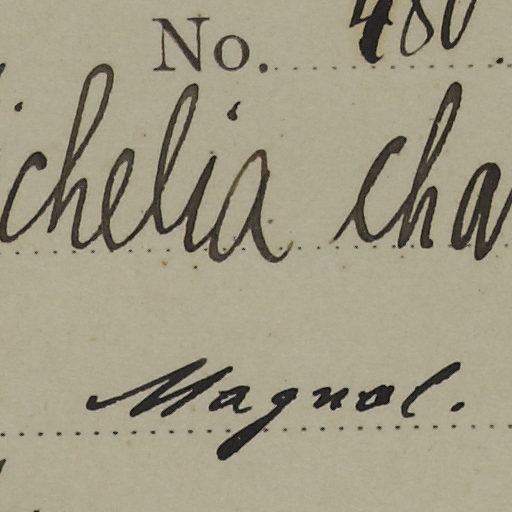 No. 480.
ichelia cha
Magnol.